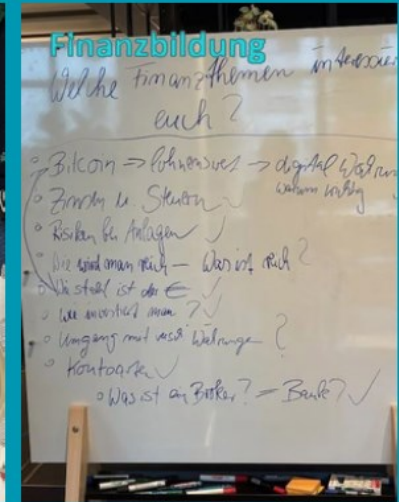 Finanzbildung
Welche Finanzthemen interessier
euch?
Bitcoin => lohnenswert -> digital Währun
warum wichtig
Zinsen u. Steuern ✓
Risiken bei Anlagen ✓
Wie wird man reich – Was ist reich?
Wie stabil ist der € ✓
Wie investiert man? ✓
Umgang mit versch Währungen ?
Kontoarten ✓
Was ist ein Broker? = Bank? ✓